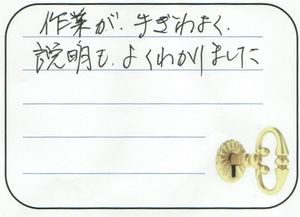 作業が、手ぎわよく、
説明も、よくわかりました